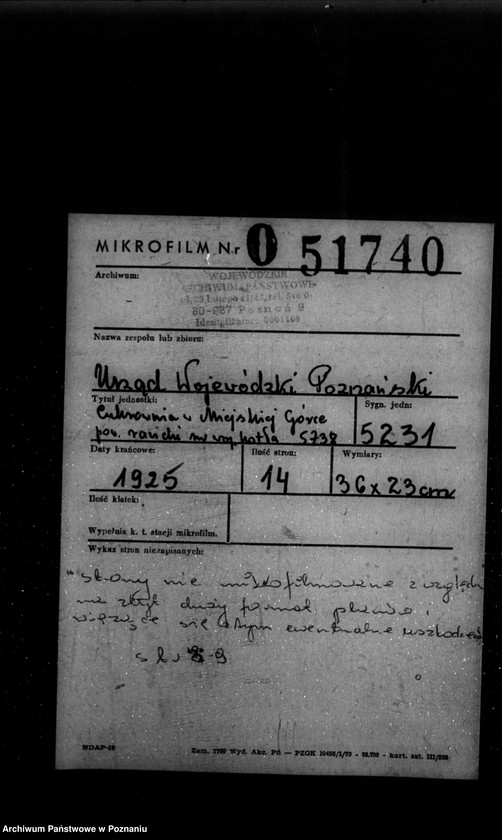 MIKROFILM Nr 0 51740
Archiwum:
WOJEWÓDZKIE
ARCHIWUM PAŃSTWOWE
60-967 Poznań 9
Nazwa zespołu lub zbioru:
Urząd Wojewódzki Poznański
Tytuł jednostki:
Cukrownia w Miejskiej Górce
pow. rawicki nr wy. kotła 5738
Sygn. jedn:
5231
Daty krańcowe:
1925
Ilość stron:
14
Wymiary:
36 x 23 cm
Ilość klatek:
Wypełnia k. t. stacji mikrofilm.
Wykaz stron niezapisanych:
"strony nie mikrofilmowane z względu
na zbyt duży format planów i
wiążące się z tym ewentualne uszkodzeń
8-9
NDAP-19
Zam. Wyd. Akc. Pń — PZGK
Archiwum Państwowe w Poznaniu